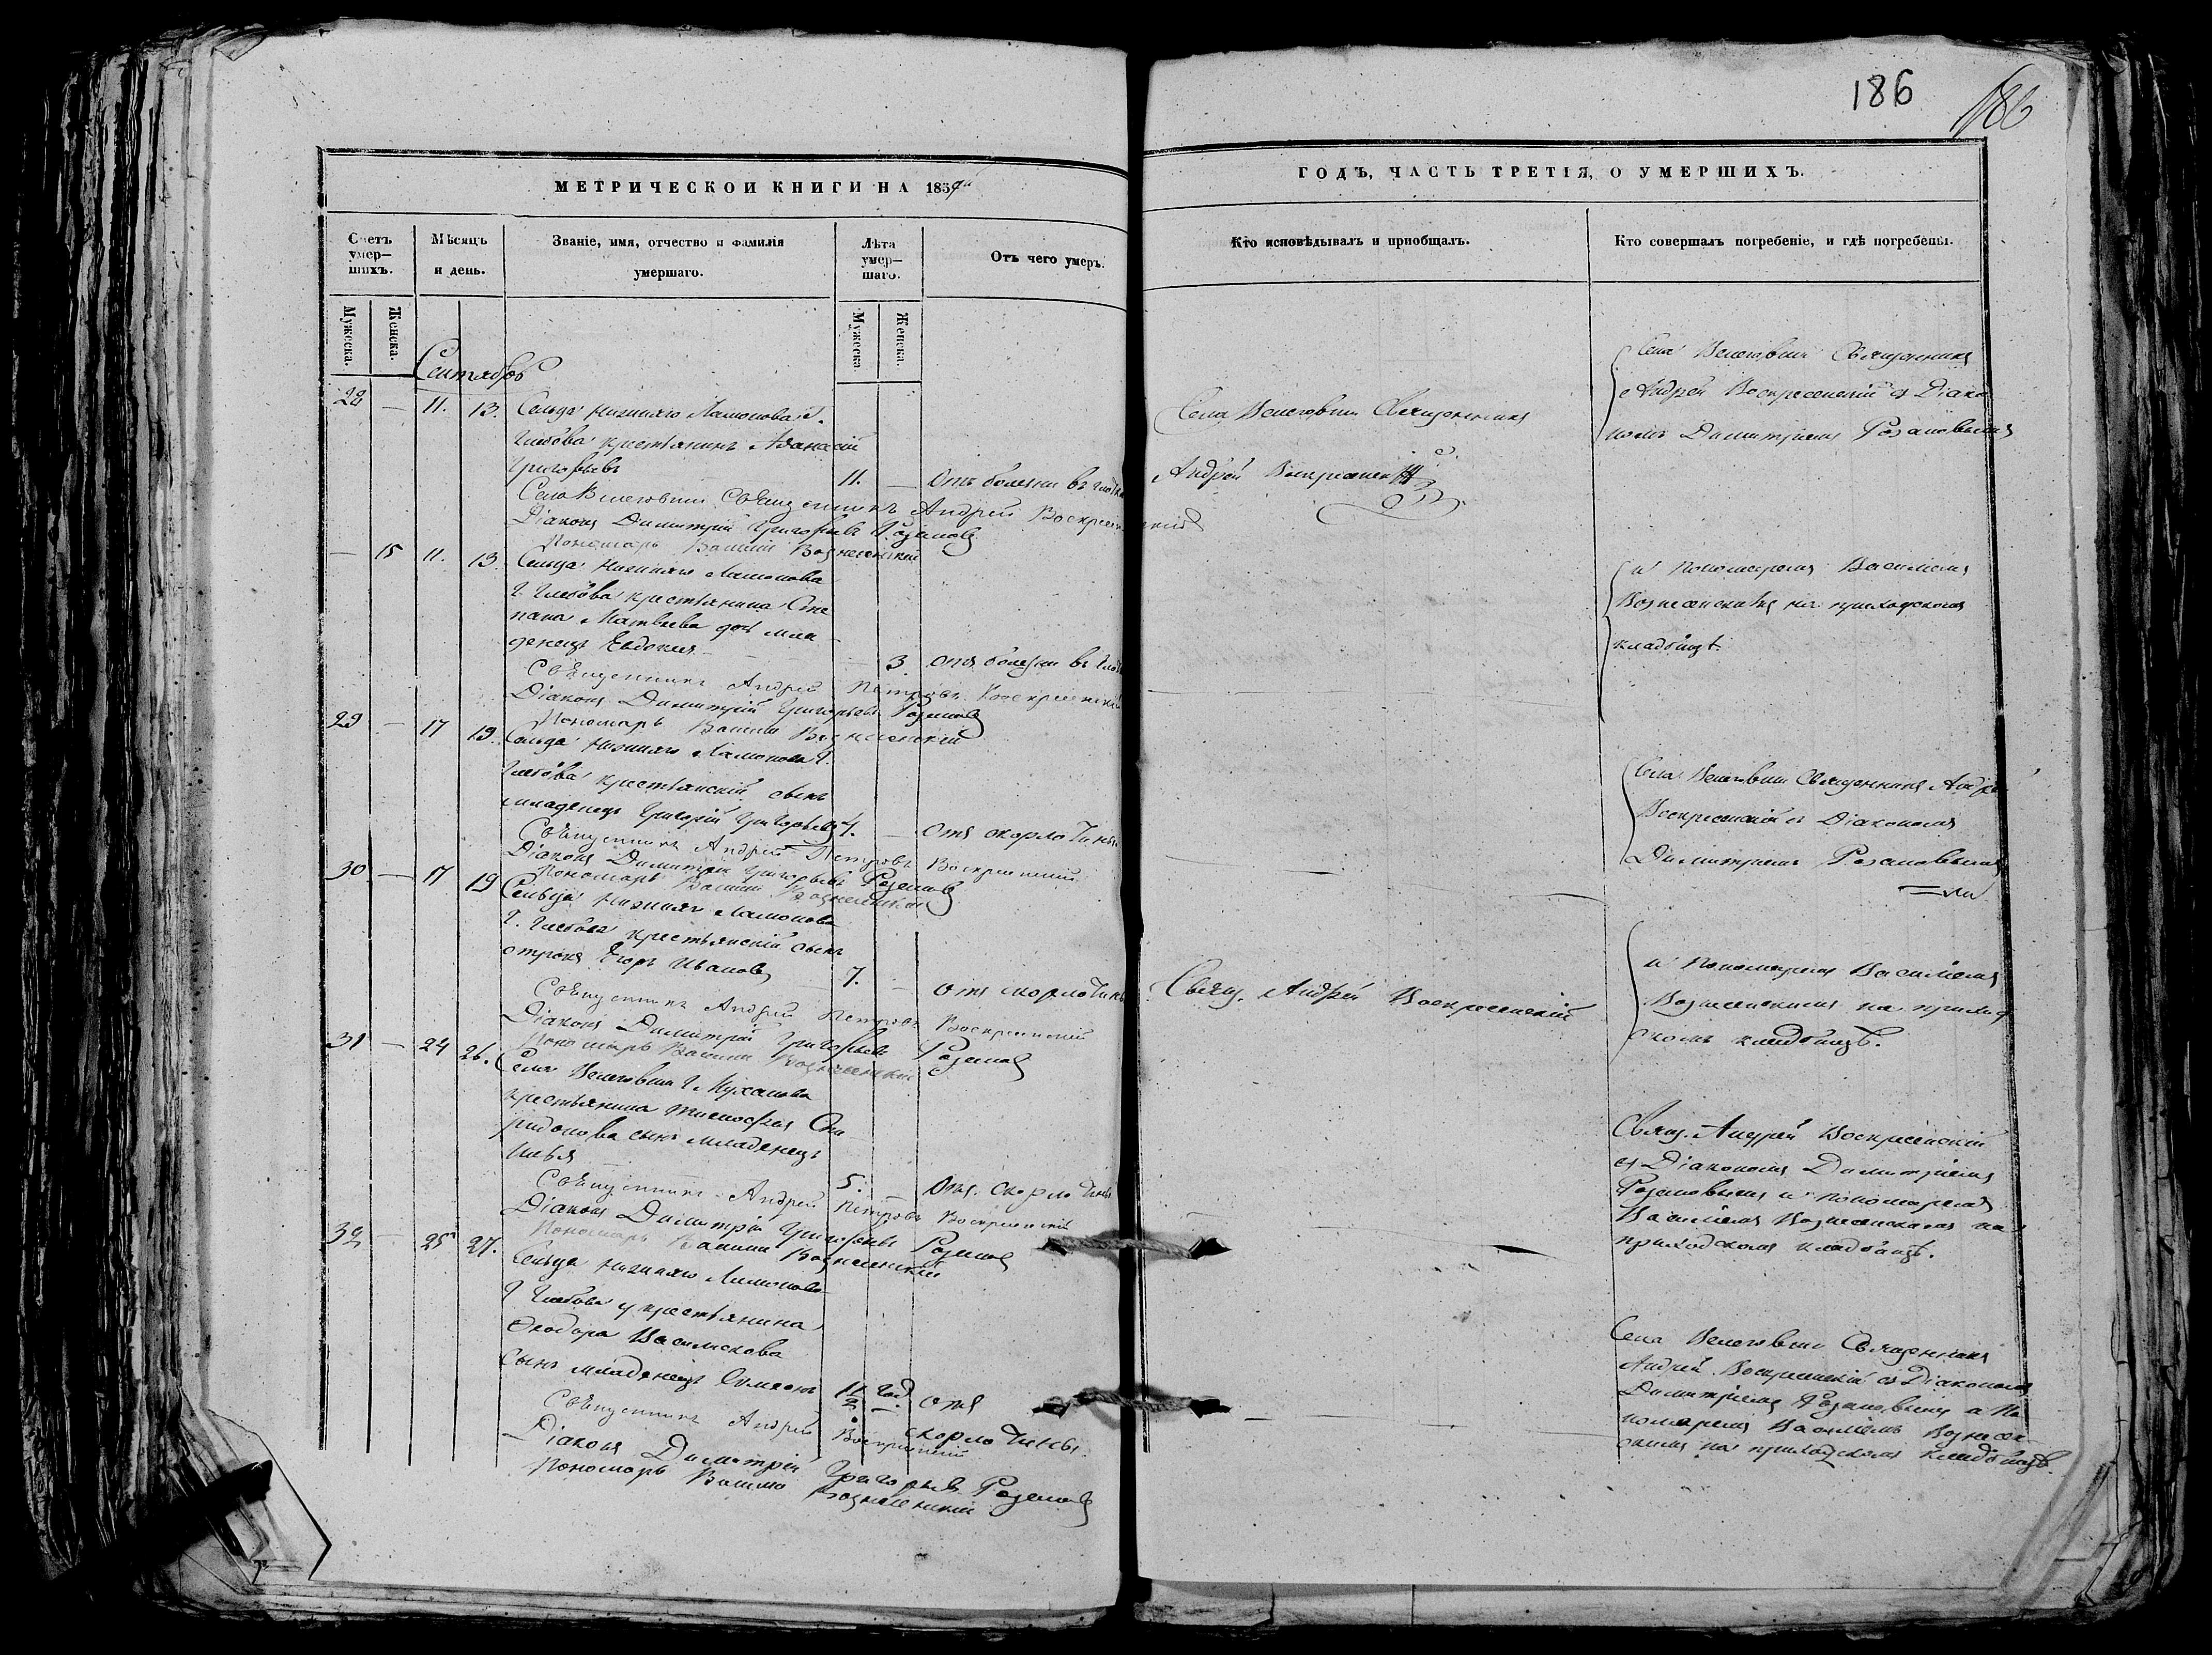 186
186
МЕТРИЧЕСКОЙ КНИГИ НА 1854й
ГОДЪ, ЧАСТЬ ТРЕТІЯ, О УМЕРШИХЪ.
Счетъ умер-шихъ.
Мѣсяцъ и день.
Званіе, имя, отчество и фамилія умершаго.
Лѣта умер-шаго.
Отъ чего умеръ.
Кто исповѣдывалъ и пріобщалъ.
Кто совершалъ погребеніе, и гдѣ погребены.
Мужеска.
Женска.
Мужеска.
Женска.
Сентябрь
28 — 11. 13. Сельца Нижняго Ламонова Г.
Глебова крестьянинъ Афанасій
Григорьевъ 11. — Отъ болезни въ
Села Священникъ Андрей Воскресенскій
Діаконъ Димитрій Григорьевъ Розановъ
Пономарь Василій Вознесенскій
Села Священникъ
Андрей Воскресенскій
Села Священникъ
Андрей Воскресенскій съ Діако
номъ Димитріемъ Розановымъ
— 15 11. 13. Сельца Нижняго Ламонова
Г. Глебова крестьянина Сте
пана Матвеева дочь мла
денецъ Евдокия — 3. отъ болезни въ
Священникъ Андрей Петровъ Воскресенскій
Діаконъ Димитрій Григорьевъ Розановъ
Пономарь Василій Вознесенскій
и Пономаремъ Василіемъ
Вознесенскимъ на приходскомъ
кладбищѣ.
29 — 17 19. Сельца Нижняго Ламонова Г.
Глебова крестьянскій сынъ
младенецъ Григорій Григорьевъ 4. — Отъ скорлотины
Священникъ Андрей Петровъ Воскресенскій
Діаконъ Димитрій Григорьевъ Розановъ
Пономарь Василій Вознесенскій
Села Священникъ Андрей
Воскресенскій съ Діакономъ
Димитріемъ Розановымъ
30 — 17 19 Сельца Нижняго Ламонова
Г. Глебова крестьянскій сынъ
отрокъ Егоръ Ивановъ 7. — отъ скорлотины
Священникъ Андрей Петровъ Воскресенскій
Діаконъ Димитрій Григорьевъ Розановъ
Пономарь Василій Вознесенскій
Свящ. Андрей Воскресенскій
и Пономаремъ Василіемъ
Вознесенскимъ на приход
скомъ кладбищѣ.
31 — 24 26. Села Г. Муханова
крестьянина Спи
ридонова сынъ младенецъ
Илья 5. Отъ скорлотины
Священникъ Андрей Петровъ Воскресенскій
Діаконъ Димитрій Григорьевъ Розановъ
Пономарь Василій Вознесенскій
Свящ. Андрей Воскресенскій
съ Діакономъ Димитріемъ
Розановымъ и пономаремъ
Василіемъ Вознесенскимъ на
приходскомъ кладбищѣ.
32 — 25 27. Сельца Нижняго Ламонова
Г Глебова у крестьянина
Феодора Василькова
сынъ младенецъ Симеонъ год отъ
скорлотины
Священникъ Андрей Воскресенскій
Діаконъ Димитрій Григорьевъ Розановъ
Пономарь Василій Вознесенскій
Села Священникъ
Андрей Воскресенскій съ Діакономъ
Димитріемъ Розановымъ и По
номаремъ Василіемъ Вознесен
скимъ на приходскомъ кладбищѣ.